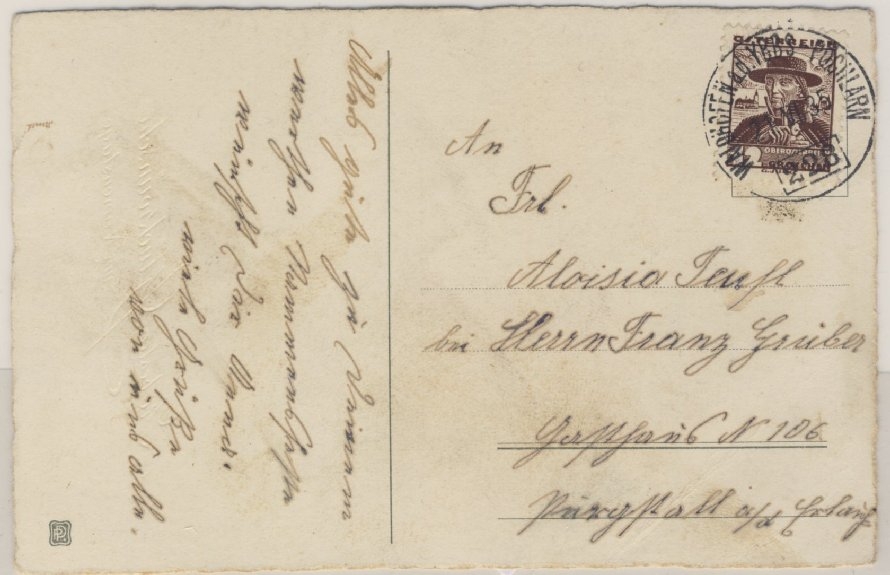 Alles gute zu Deinem
werthen Namensfeste
wünscht Dir Anna.
viele Grüße
von uns alle.
An
Frl.
Aloisia Teufl
bei Herrn Franz Gruber
Gasthaus N 106
Purgstall a/d Erlauf
ÖSTERREICH
WAIDHOFEN a.d. YBBS PÖCHLARN
35
PP